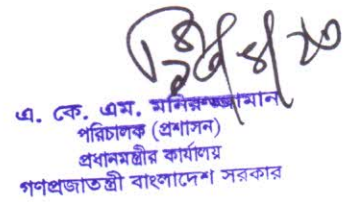 এ. কে. এম. মনিরুজ্জামান
পরিচালক (প্রশাসন)
প্রধানমন্ত্রীর কার্যালয়
গণপ্রজাতন্ত্রী বাংলাদেশ সরকার